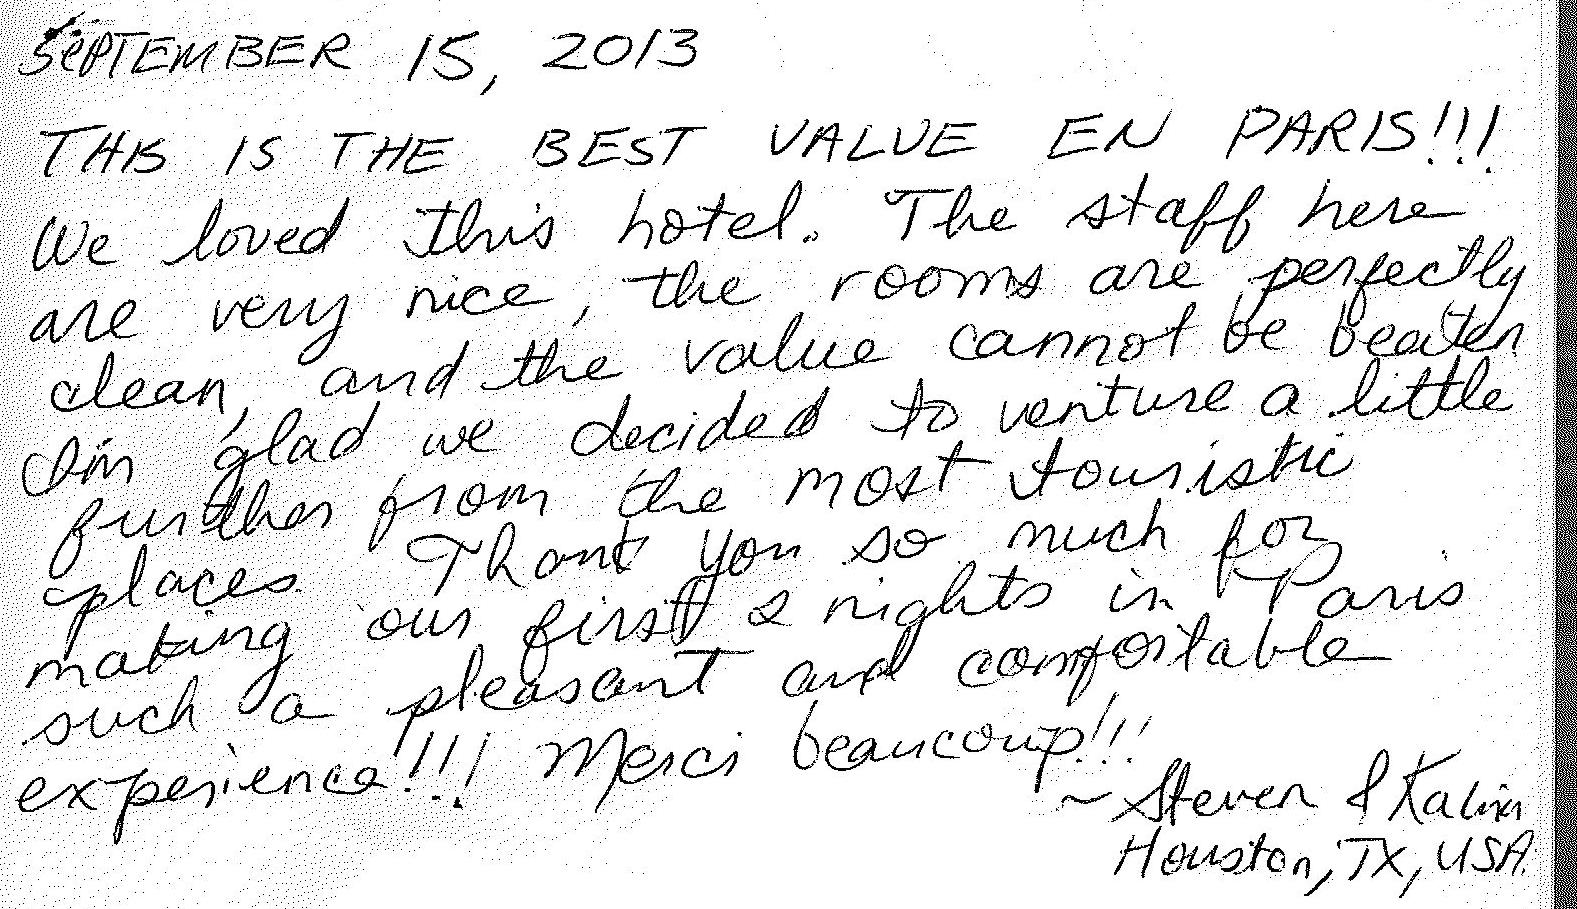 SEPTEMBER 15, 2013
THIS IS THE BEST VALUE EN PARIS!!!
We loved this hotel. The staff here
are very nice, the rooms are perfectly
clean, and the value cannot be beaten
I'm glad we decided to venture a little
further from the most touristic
places. Thank you so much for
making our first 2 nights in Paris
such a pleasant and comfortable
experience!!! Merci beaucoup!!!
~ Steven &
Houston, TX, USA.